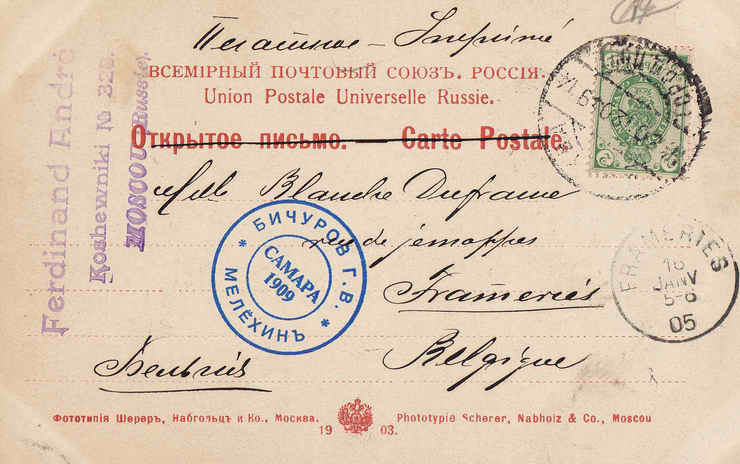 Печатное – Imprimé
ВСЕМІРНЫЙ ПОЧТОВЫЙ СОЮЗЪ. РОССІЯ.
Union Postale Universelle Russie.
Открытое письмо. — Carte Postale.
Ferdinand André
Koshewniki № 323.
MOSCOU (Russie).
Mlle Blanche Duframe
rue de jemappes
Frameries
Belgique
Бельгія
БИЧУРОВ Г. В.
САМАРА
1909
МЕЛЁХИНЪ
FRAMERIES
16
JANV
5-6
05
Фототипія Шереръ, Набгольцъ и Ко., Москва. Phototypie Scherer, Nabholz & Co., Moscou
19 03.